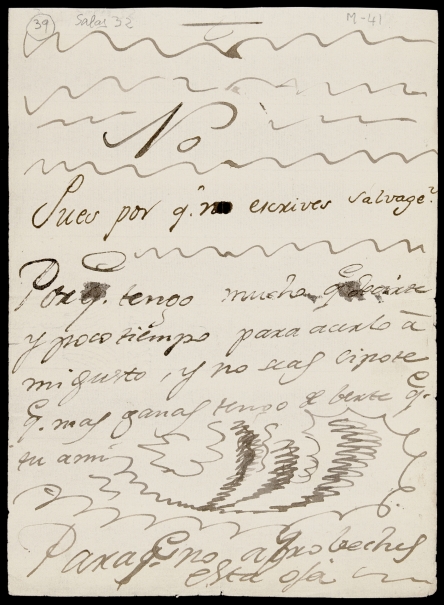 39 Salas 32 M-41
No
Pues por q.e no escrives salvage?
Porq.e tengo mucho q.e decirte
y poco tiempo para acerlo à
mi gusto, y no seas cipote
q.e mas ganas tengo de berte q.e
tu a mi
Para q.e no aprobeches
esta oja